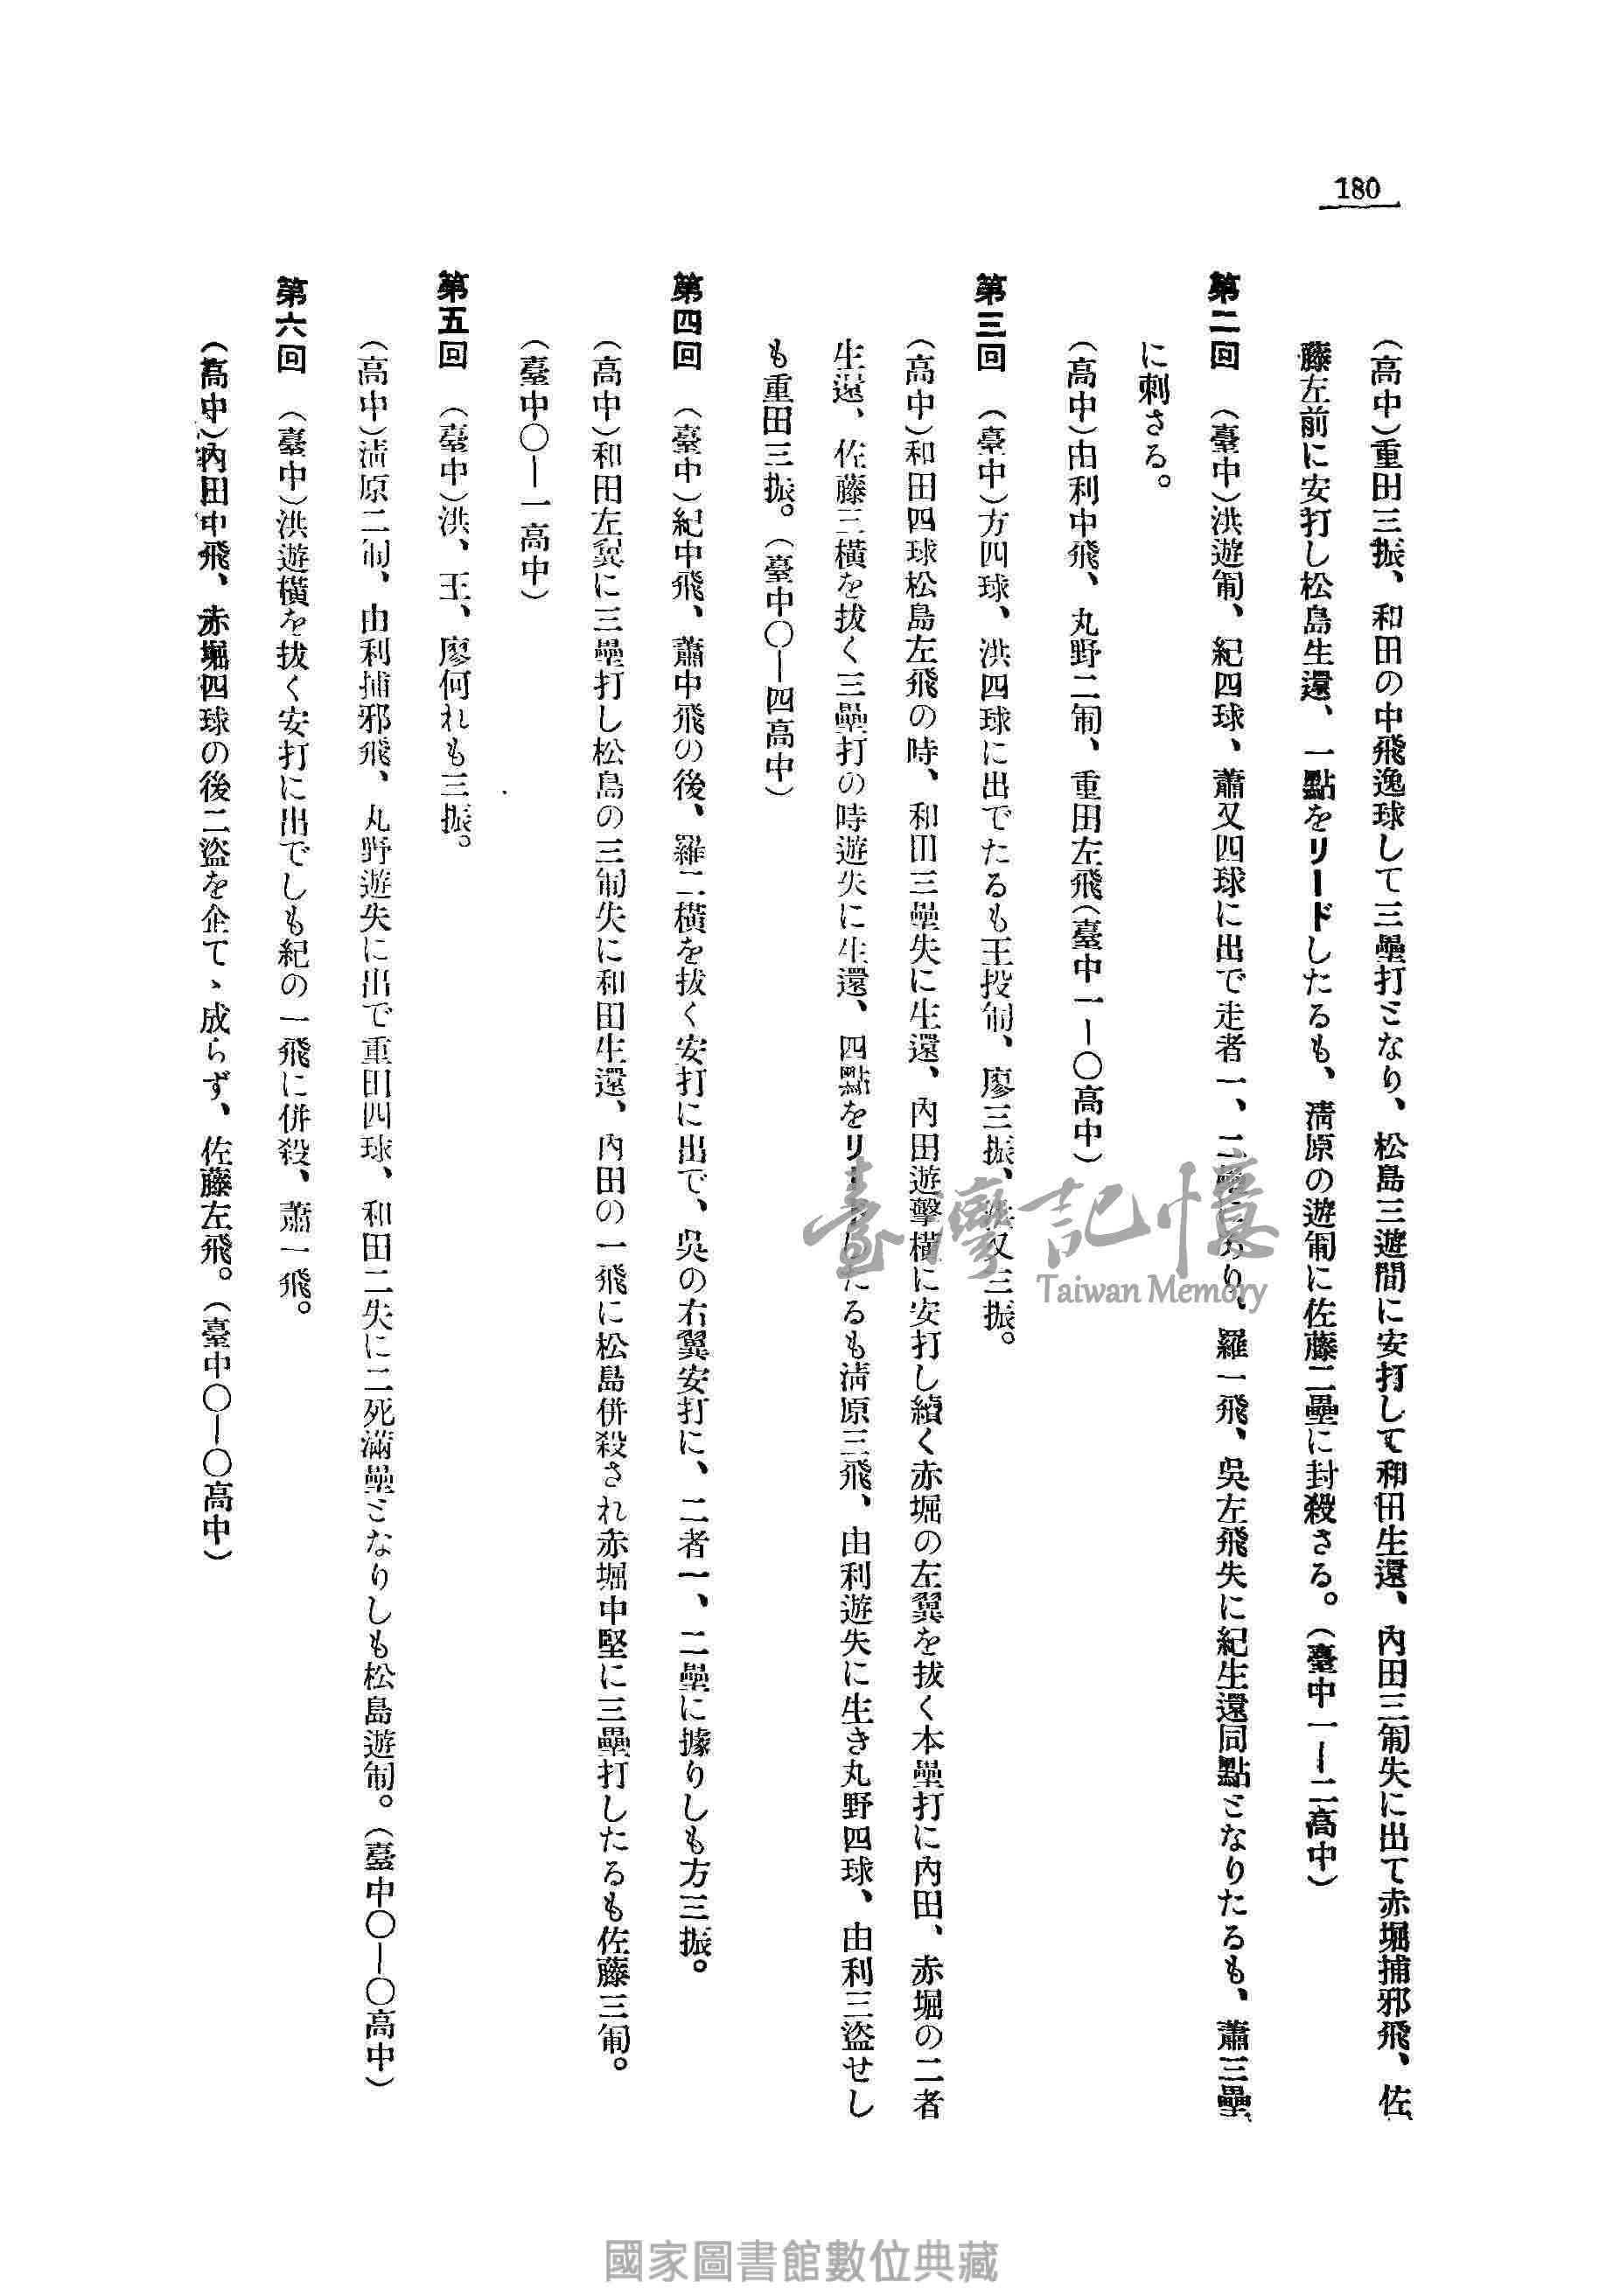 180
（高中）重田三振、和田の中飛逸球して三壘打となり、松島三遊間に安打して和田生還、內田三匍失に出て赤堀捕邪飛、佐
藤左前に安打し松島生還、一點をリードしたるも、淸原の遊匍に佐藤二壘に封殺さる。（臺中一｜二高中）
第二回　（臺中）洪遊匍、紀四球、蕭又四球に出で走者一、二り、羅一飛、吳左飛失に紀生還同點となりたるも、蕭三壘
に刺さる。
（高中）由利中飛、丸野二匍、重田左飛（臺中一｜〇高中）
第三回　（臺中）方四球、洪四球に出でたるも王投匍、廖三振、又三振。
（高中）和田四球松島左飛の時、和田三壘失に生還、內田遊擊橫に安打し續く赤堀の左翼を拔く本壘打に內田、赤堀の二者
生還、佐藤三橫を拔く三壘打の時遊失に生還、四點をリーたるも淸原三飛、由利遊失に生き丸野四球、由利三盜せし
も重田三振。（臺中〇｜四高中）
第四回　（臺中）紀中飛、蕭中飛の後、羅二橫を拔く安打に出で、吳の右翼安打に、二者一、二壘に據りしも方三振。
（高中）和田左翼に三壘打し松島の三匍失に和田生還、內田の一飛に松島併殺され赤堀中堅に三壘打したるも佐藤三匍。
（臺中〇｜一高中）
第五回　（臺中）洪、王、廖何れも三振。
（高中）淸原二匍、由利捕邪飛、丸野遊失に出で重田四球、和田二失に二死滿壘となりしも松島遊匍。（臺中〇｜〇高中）
第六回　（臺中）洪遊橫を拔く安打に出でしも紀の一飛に併殺、蕭一飛。
（高中）內田中飛、赤堀四球の後二盜を企てゝ成らず、佐藤左飛。（臺中〇｜〇高中）
臺灣記憶
Taiwan Memory
國家圖書館數位典藏